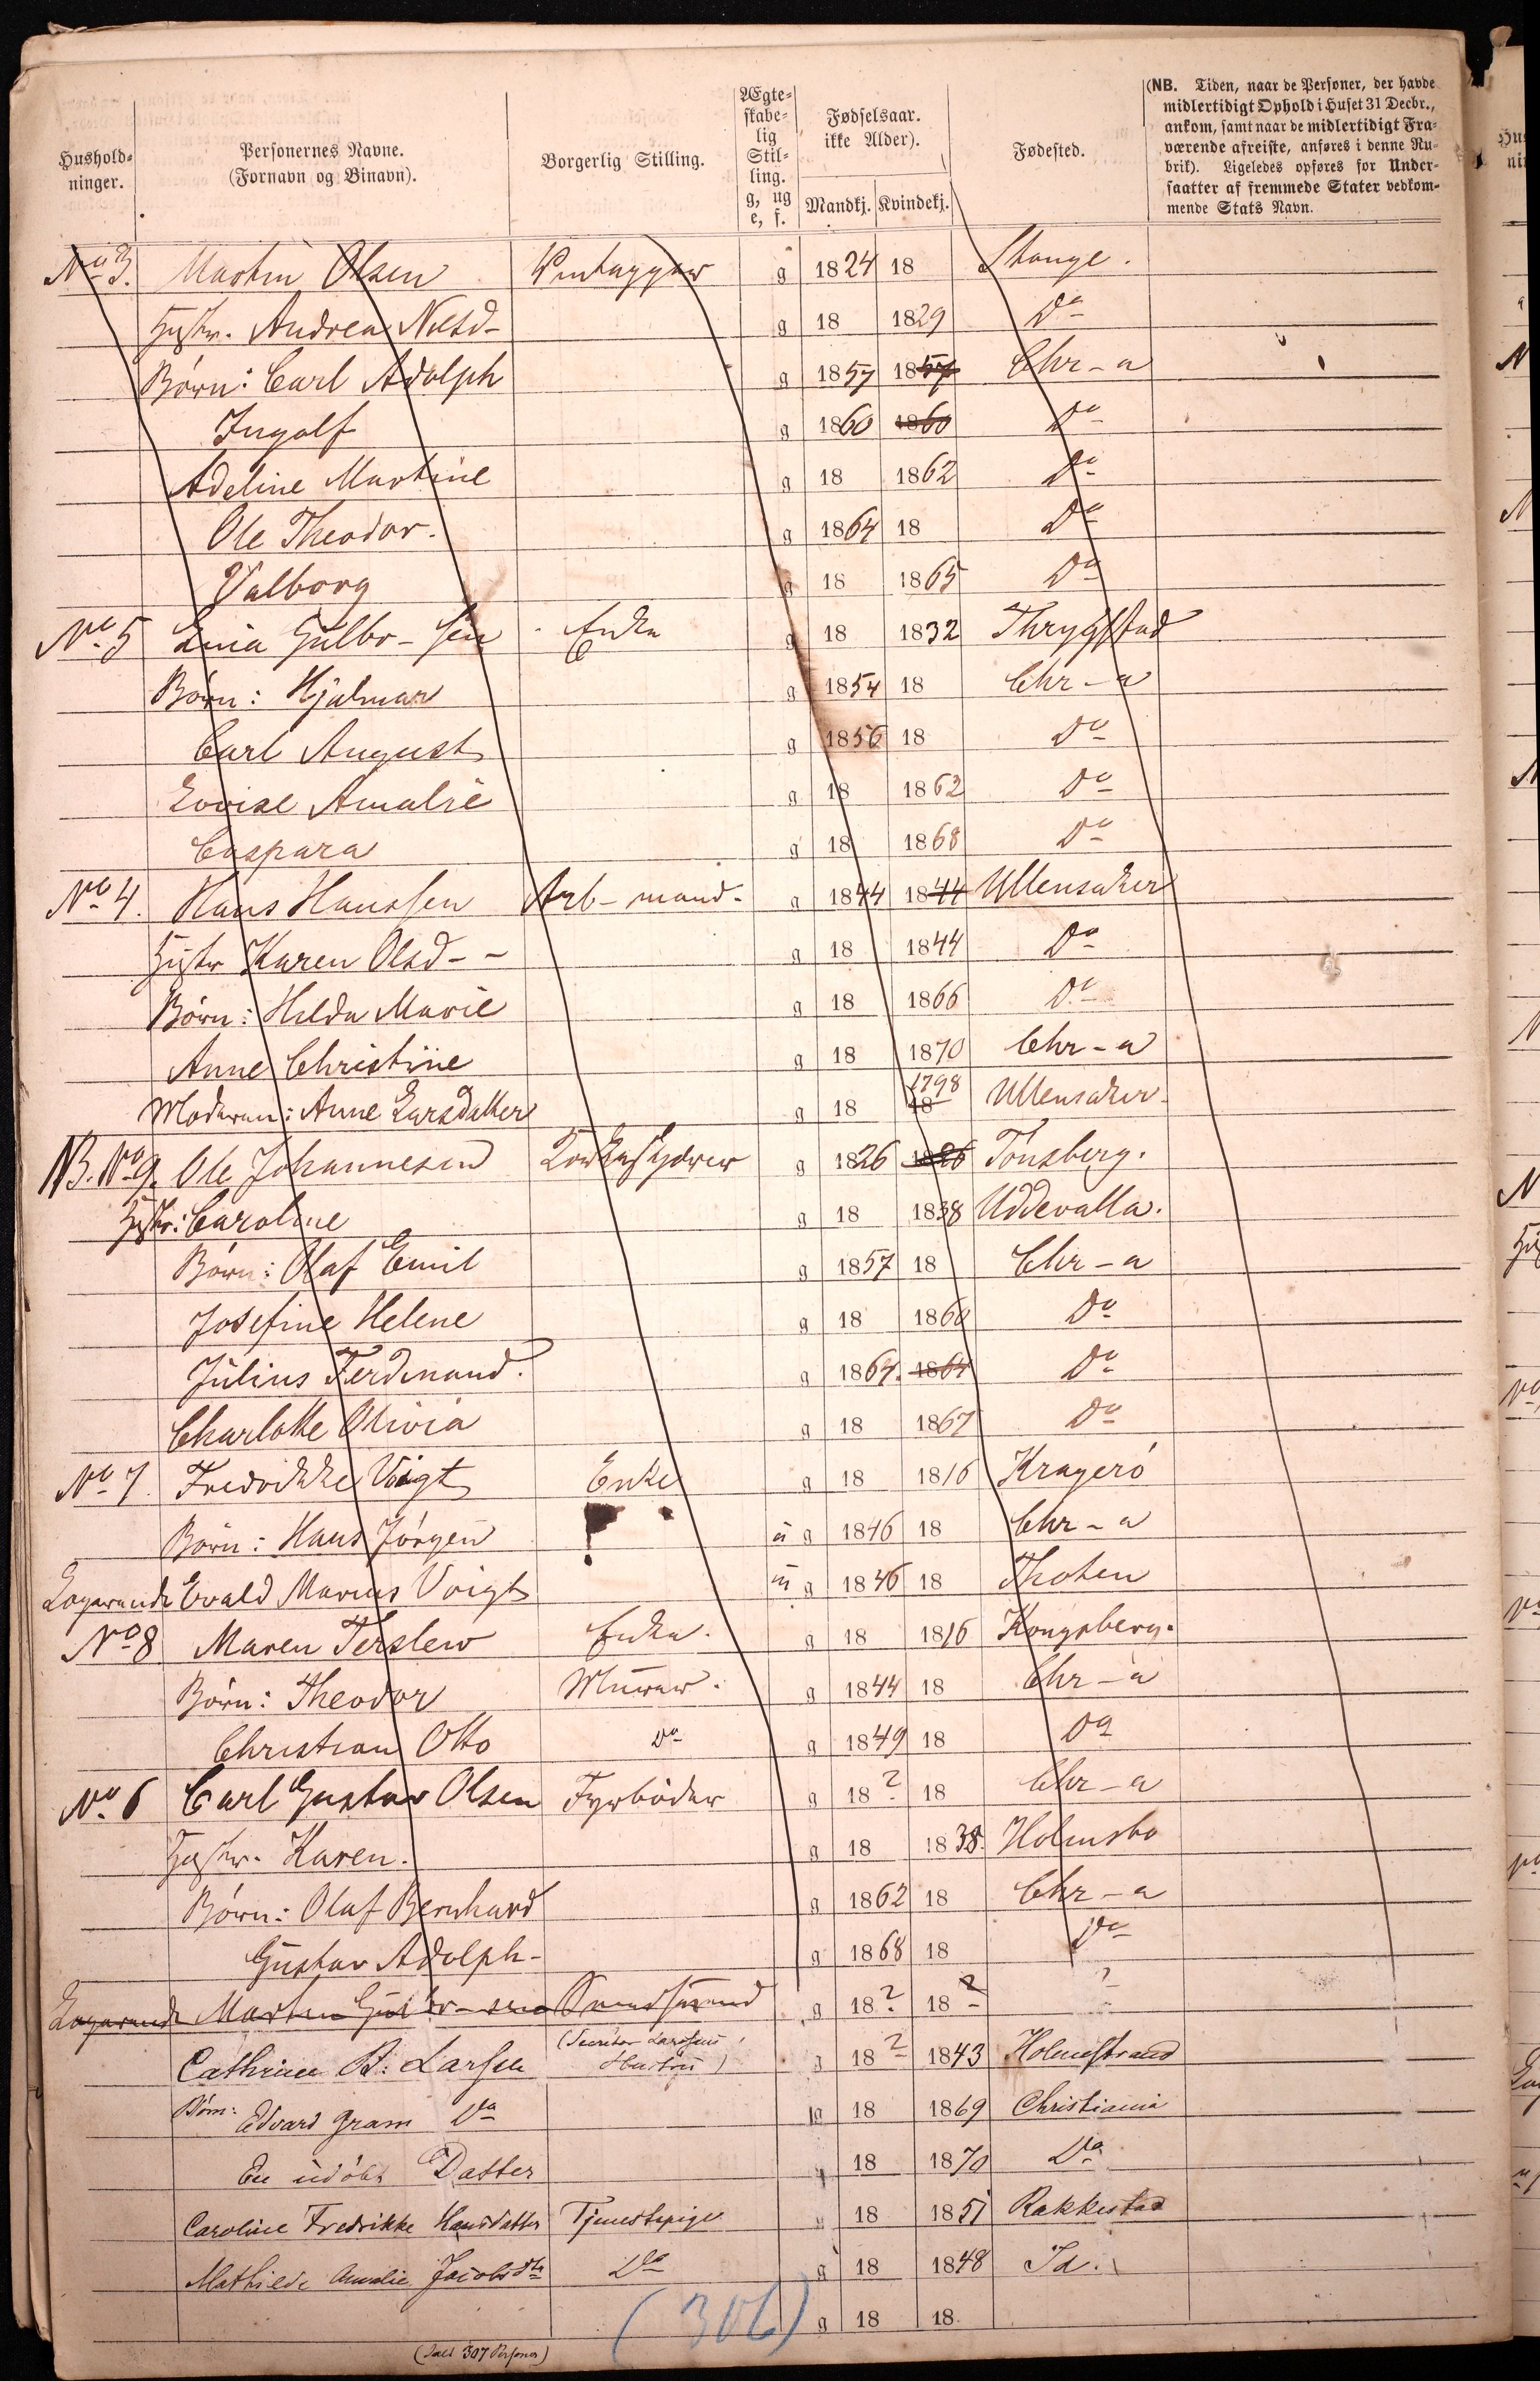 Hushold-
ninger.
Personernes Navne.
(Fornavn og Binavn).
Borgerlig Stilling.
Ægte-
skabe-
lig
Stil-
ling.
g, ug
e, f.
Fødselsaar.
ikke Alder).
Mandkj. Kvindekj.
Fødested.
(NB. Tiden, naar de Personer, der havde
midlertidigt Ophold i Huset 31 Decbr.,
ankom, samt naar de midlertidigt Fra-
værende afreiste, anføres i denne Ru-
brik). Ligeledes opføres for Under-
saatter af fremmede Stater vedkom-
mende Stats Navn.
No 3. Martin Olsen g 1824 18 Stange.
Hustr. Andrea Nilsd- g 18 1829 Do
Børn: Carl Adolph g 1857 1857 Chr-a
Ingolf g 1860 1860 Do
Adeline Martine g 18 1862 Do
Ole Theodor. g 1864 18 Do
Valborg g 18 1865 Do
No 5 Lina Gulbr-sen Enke g 18 1832 Thrygstad
Børn: Hjalmar g 1854 18 Chr-a
Carl August g 1856 18 Do
Lovise Amalie g 18 1862 Do
Caspara g 18 1868 Do
No 4. Hans Hanssen Arb-mand. g 1844 1844 Ullensaker
Hustr Karen Olsd-- g 18 1844 Do
Børn: Hilda Marie g 18 1866 Do
Anne Christine g 18 1870 Chr-a
Moderen: Anne Larsdatter g 18 1798 18 Ullensaker
NB. No 9. Ole Johannesen g 1826 1826 Tönsberg.
Hustr: Caroline g 18 1838 Uddevalla.
Børn: Olaf Emil g 1857 18 Chr-a
Josefine Helene g 18 1860 Do
Julius Ferdinand. g 1864. 1864 Do
Charlotte Olivia g 18 1867 Do
No 7. Fredrikke Voigt Enke g 18 1816 Kragerö
Børn: Hans Jörgen u g 1846 18 Chr-a
Logerende Evald Marius Voigt u g 1846 18 Thoten
No 8 Maren Terslew Enke. g 18 1816 Kongsberg.
Børn: Theodor Murer. g 1844 18 Chr-a
Christian Otto Do g 1849 18 Do
No 6 Carl Gustav Olsen Fyrböder g 18? 18 Chr-a
Hustr. Karen. g 18 1838. Holmsbo
Børn: Olaf Bernhard g 1862 18 Chr-a
Gustav Adolph- g 1868 18 Do
Logerende Martin Gulbr-sen g 18? 18? ?
Cathrine B. Larsen (Secretær Larsens Hustru) g 18? 1843 Holmestrand
Børn: Edvard Gram Do g 18 1869 Christiania
En udöbt Datter g 18 1870 Do
Caroline Fredrikke Hansdatter Tjenestepige g 18 1851 Rakkestad
Mathilde Amalie Jacobsdtr Do g 18 1848 Id.
g 18 18
(306)
(Ialt 307 Personer)